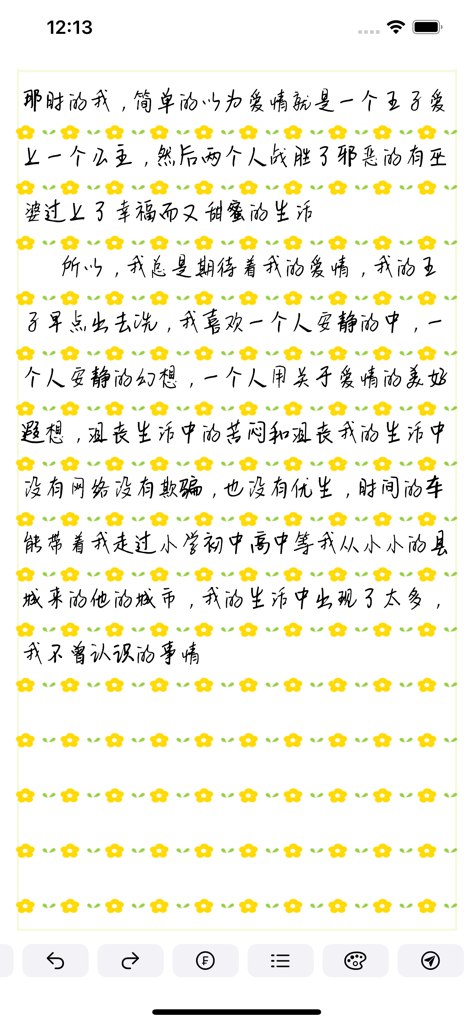 12:13
那时的我，简单的以为爱情就是一个王子爱
上一个公主，然后两个人战胜了邪恶的有巫
婆过上了幸福而又甜蜜的生活
所以，我总是期待着我的爱情，我的王
子早点出去洗，我喜欢一个人安静的中，一
个人安静的幻想，一个人用关于爱情的美好
遐想，沮丧生活中的苦闷和沮丧我的生活中
没有网络没有欺骗，也没有优生，时间的车
能带着我走过小学初中高中等我从小小的县
城来的他的城市，我的生活中出现了太多，
我不曾认识的事情